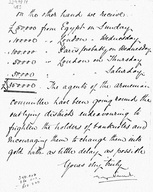 on the other hand we receive
£50000 from Egypt on Sunday.
100000 " London " Wednesday
50000 " Paris, probably on Wednesday
50000 " London on Thursday
50000 Saturday
£300000 The agents of the
committee have been going round the
outlying districts endeavouring to
frighten the holders of banknotes and
encouraging them to change them into
gold with as little delay, as possible.
Yours very truly